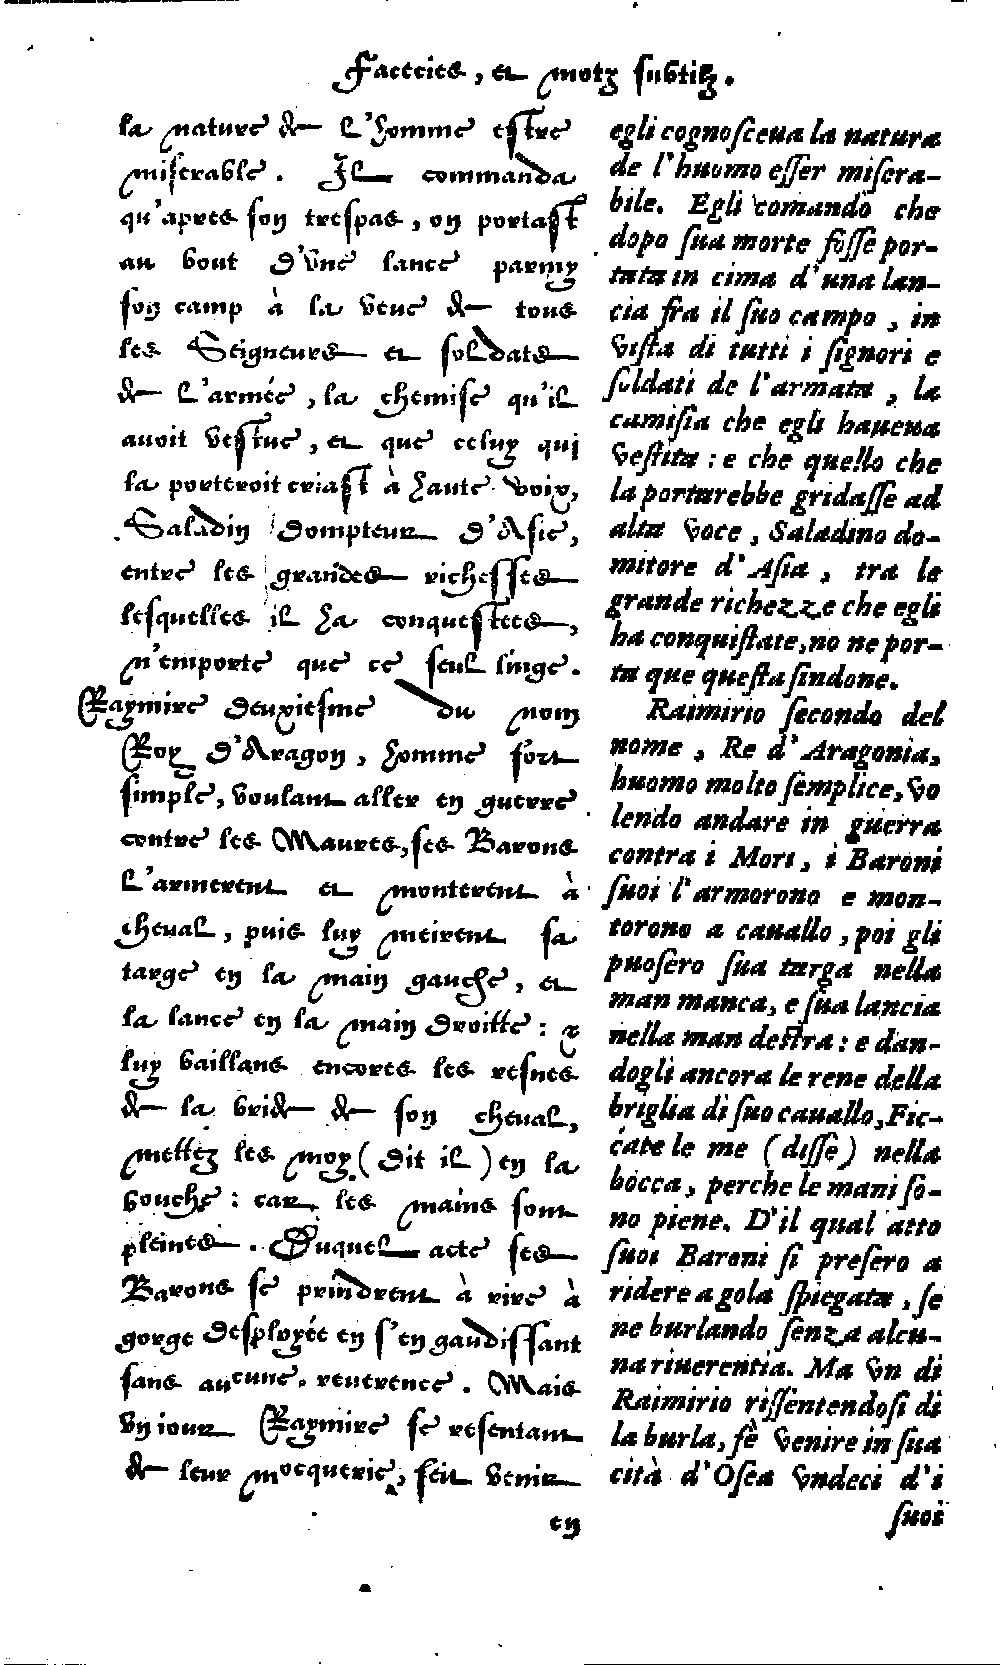 Faceties, et motz subtilz.
la nature de l'homme estre
miserable. Il commanda
qu'apres son trespas, on portast
au bout d'vne lance parmy
son camp à la veue de tous
les Seigneurs et soldats
de l'armée, la chemise qu'il
auoit vestue, et que celuy qui
la porteroit criast à haute voix,
Saladin dompteur d'Asie,
entre les grandes richesses
lesquelles il ha conquestees,
n'emporte que ce seul linge.
Raymire deuxiesme du nom
Roy d'Aragon, homme fort
simple, voulant aller en guerre
contre les Maures, ses Barons
l'armerent et monterent à
cheual, puis luy meirent sa
targe en la main gauche, et
la lance en la main droitte: &
luy baillans encores les resnes
de la bride de son cheual,
mettez les moy (dit il) en la
bouche: car les mains sont
pleines. Duquel acte ses
Barons se prindrent à rire à
gorge desployée en s'en gaudissant
sans aucune reuerence. Mais
vn iour Raymire se resentant
de leur mocquerie, feit venir
en
egli cognosceua la natura
de l'huomo esser misera-
bile. Egli comandò che
dopo sua morte fosse por-
tata in cima d'una lan-
cia fra il suo campo, in
vista di tutti i signori e
soldati de l'armata, la
camisia che egli haueua
vestita: e che quello che
la portarebbe gridasse ad
alta voce, Saladino do-
mitore d'Asia, tra le
grande richezze che egli
ha conquistate, no ne por-
ta que questa sindone.
Raimirio secondo del
nome, Re d'Aragonia,
huomo molto semplice, vo
lendo andare in guerra
contra i Mori, i Baroni
suoi l'armorono e mon-
torono a cauallo, poi gli
puosero sua targa nella
man manca, e sua lancia
nella man destra: e dan-
dogli ancora le rene della
briglia di suo cauallo, Fic-
cate le me (disse) nella
bocca, perche le mani so-
no piene. D'il qual atto
suoi Baroni si presero a
ridere a gola spiegata, se
ne burlando senza alcu-
na riuerentia. Ma vn di
Raimirio rissentendosi di
la burla, fè venire in sua
cità d'Osea vndeci d'i
suoi